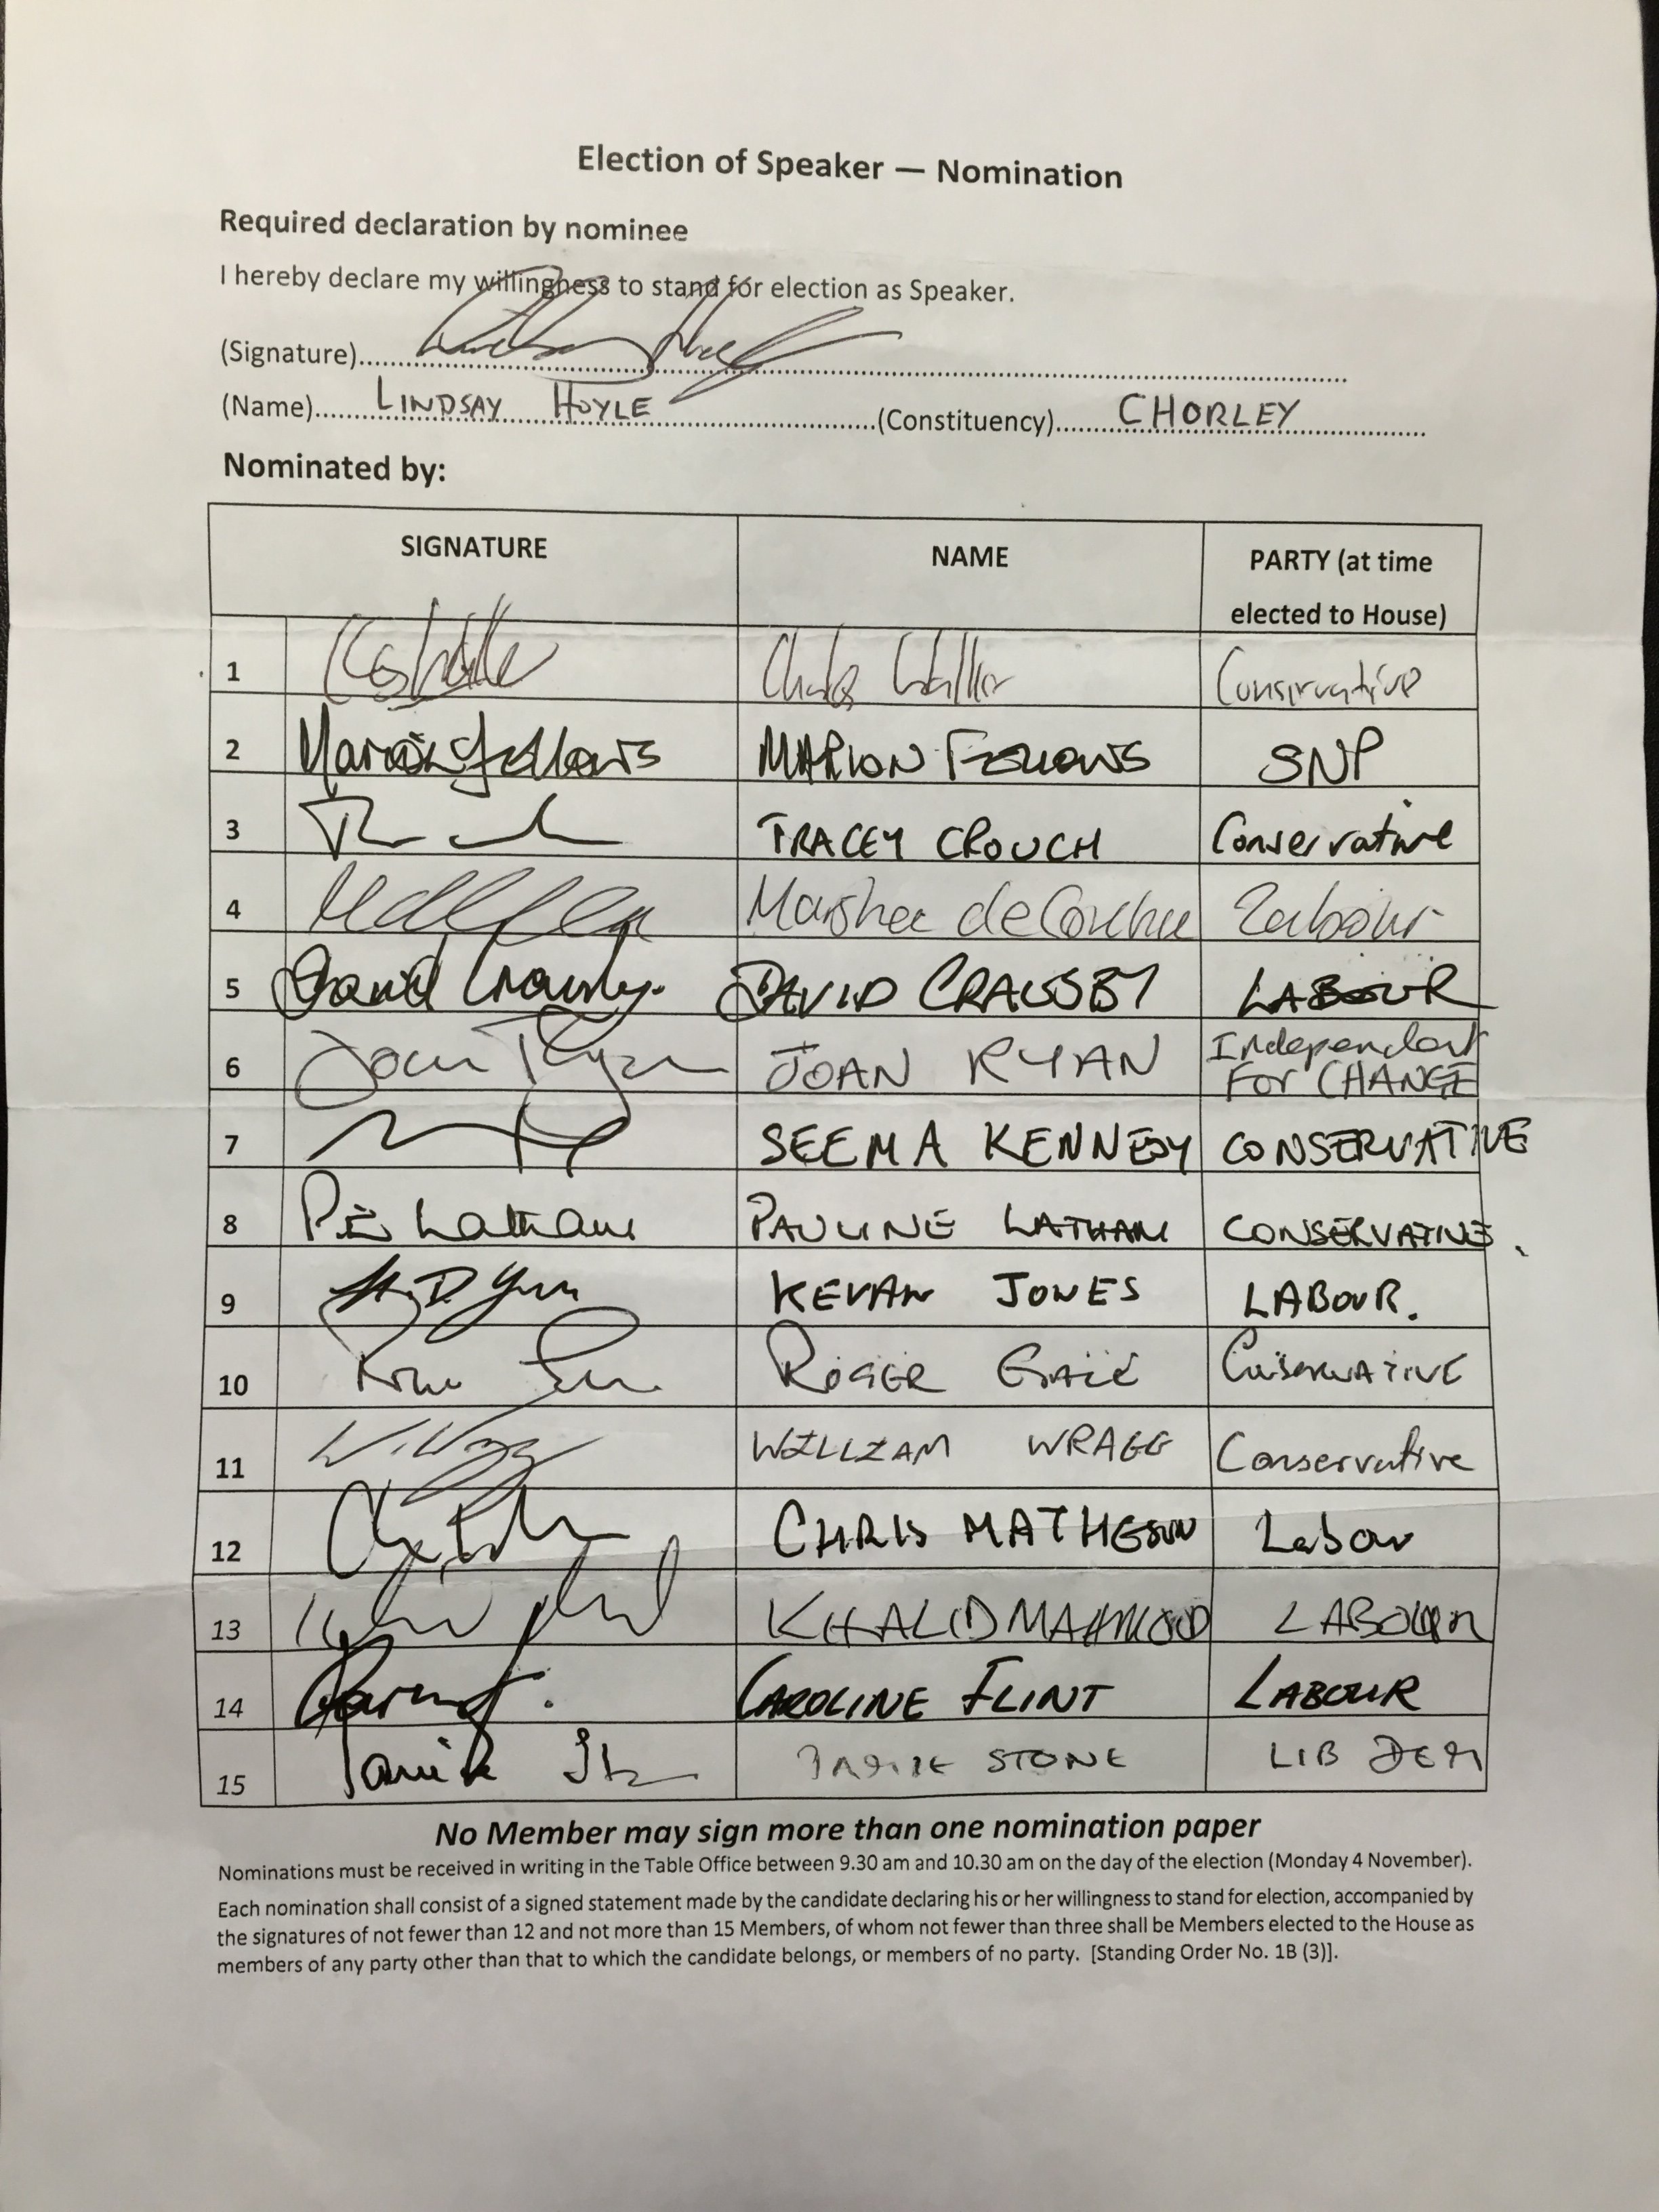 Election of Speaker — Nomination
Required declaration by nominee
I hereby declare my willingness to stand for election as Speaker.
(Signature)..........
(Name)..... LINDSAY HOYLE ..........(Constituency)..... CHORLEY .....
Nominated by:
SIGNATURE NAME PARTY (at time elected to House)
1 Charles Walker Conservative
2 Marion Fellows MARION FELLOWS SNP
3 TRACEY CROUCH Conservative
4 Marsha de Cordova Labour
5 David Crausby. DAVID CRAUSBY LABOUR
6 Joan Ryan JOAN RYAN Independent FOR CHANGE
7 SEEMA KENNEDY CONSERVATIVE
8 P.E. Latham PAULINE LATHAM CONSERVATIVE.
9 KEVAN JONES LABOUR.
10 ROGER GALE CONSERVATIVE
11 WILLIAM WRAGG Conservative
12 CHRIS MATHESON Labour
13 KHALID MAHMOOD LABOUR
14 CAROLINE FLINT LABOUR
15 Jamie St JAMIE STONE LIB DEM
No Member may sign more than one nomination paper
Nominations must be received in writing in the Table Office between 9.30 am and 10.30 am on the day of the election (Monday 4 November).
Each nomination shall consist of a signed statement made by the candidate declaring his or her willingness to stand for election, accompanied by
the signatures of not fewer than 12 and not more than 15 Members, of whom not fewer than three shall be Members elected to the House as
members of any party other than that to which the candidate belongs, or members of no party. [Standing Order No. 1B (3)].